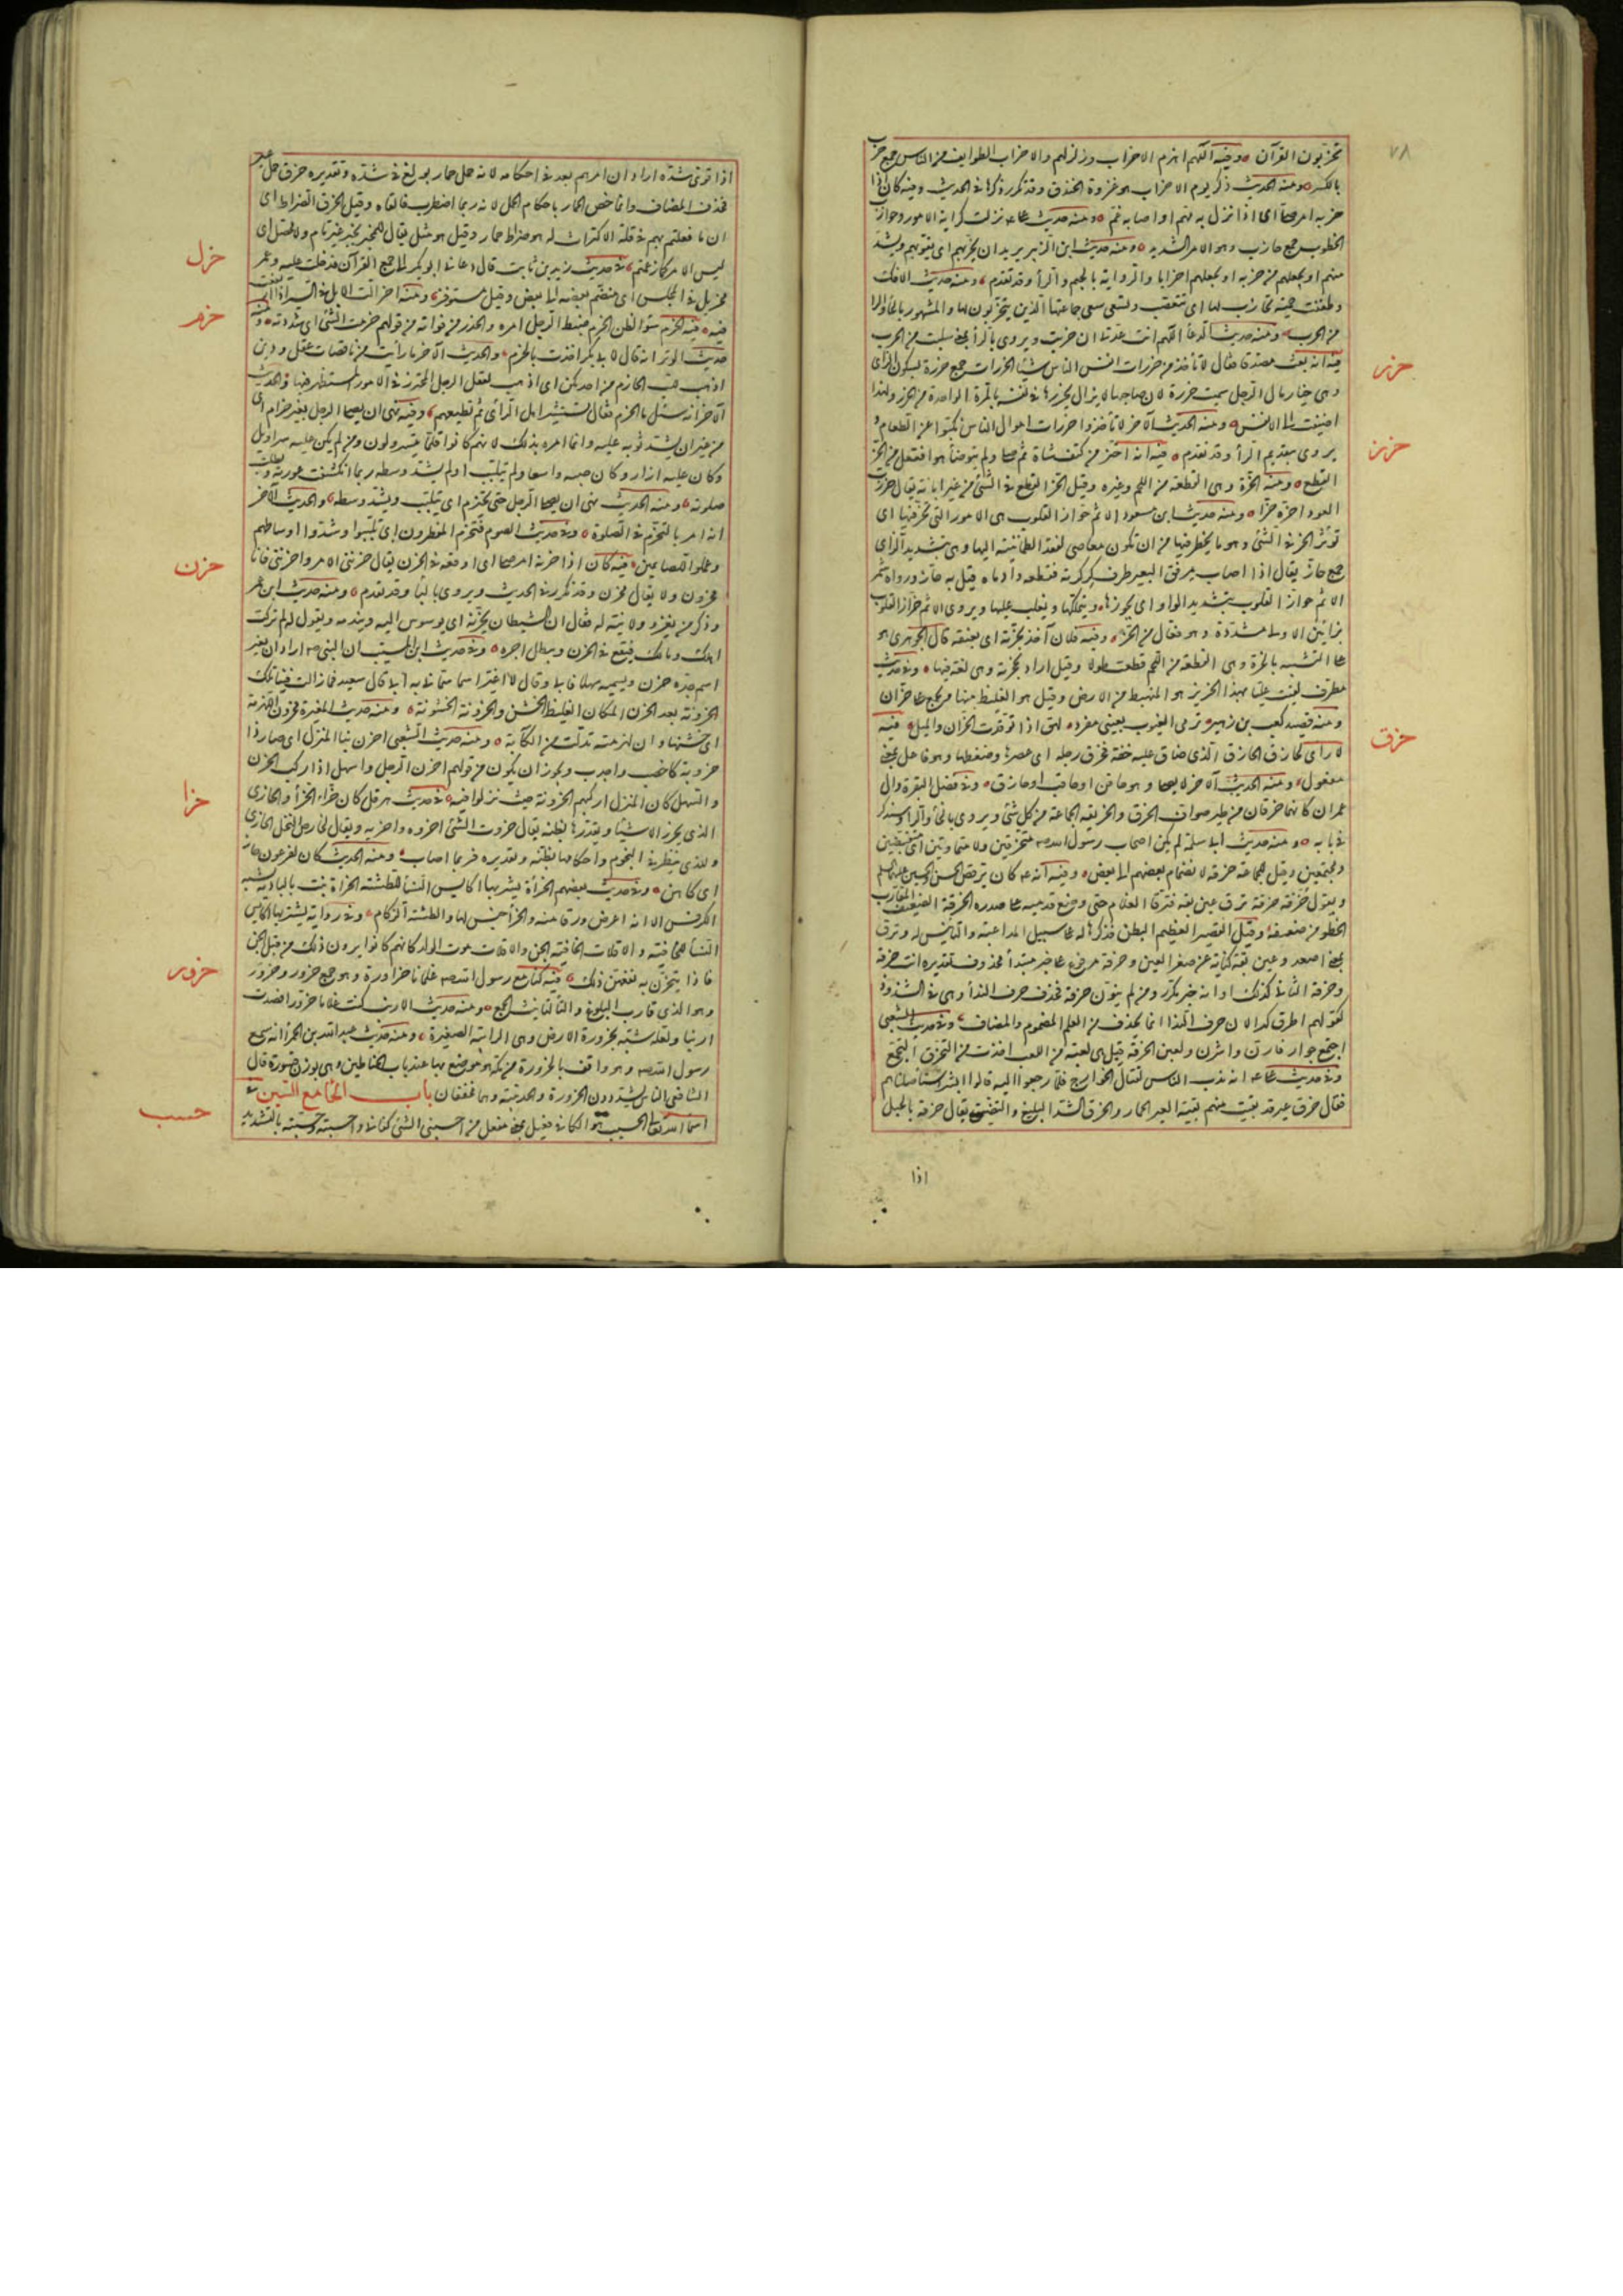 ٧٨
تحزبون القرآن ومنه اللهم اهزم الاحزاب وزلزلهم والاحزاب الطوايف من الناس جمع حزب
بالكسر ومنه الحديث ذكر يوم الاحزاب هو غزوة الخندق وقد تكرر ذكرها في الحديث وفيه كان اذا
حزبه امر صلى اى اذا نزل به مهم او اصابه غم ومنه حديث على نزلت كراية الامور وحوازب
الخطوب جمع حازب وهو الامر الشديد ومنه حديث ابن الزبير يريد ان يحزبهم اى يقويهم ويشد
منهم او يجعلهم من حزبه او يجعلهم احزابا والرواية بالجيم والرا وقد تقدم ومنه حديث الافك
وطفقت حمنة تحازب لها اى تتعصب وتسعى سعى جماعتها الذين يتحزبون لها والمشهور بالحا والرا
من الحرب ومنه حديث الدعا اللهم انت عدتى ان حزبت ويروى بالرا بمعنى سلبت من الحرب
حزر
فيه انه بعث مصدقا فقال لا تأخذ من حزرات انفس الناس شيئا الحزرات جمع حزرة بسكون الزاى
وهى خيار مال الرجل سميت حزرة لان صاحبها لا يزال يحزرها فى نفسه بالمرة الواحدة من الحزر ولهذا
اضيفت الى الانفس ومنه الحديث الآخر لا تأخذوا حزرات اموال الناس نكبوا عن الطعام
حزز
يروى بتقديم الرا وقد تقدم فيه انه احتز من كتف شاة ثم صلى ولم يتوضأ هو افتعل من الحز
القطع ومنه الحزة وهى القطعة من اللحم وغيره وقيل الحز القطع فى الشئ من غير ابانة يقال حززت
العود احزه حزا ومنه حديث ابن مسعود الاثم حواز القلوب هى الامور التى تحز فيها اى
تؤثر كما يؤثر الحز فى الشئ وهو ما يخطر فيها من ان تكون معاصى لفقد الطمانينة اليها وهى بتشديد الزاى
جمع حاز يقال اذا اصاب مرفق البعير طرف كركرته فقطعه وادماه قيل به حاز ورواه شمر
الاثم حواز القلوب بتشديد الواو اى يحوزها ويتملكها ويغلب عليها ويروى الاثم حزاز القلوب
بزايين الاولى مشددة وهو فعال من الحز وفيه فلان آخذ بحزته اى بعنقه قال الجوهرى هو
على التشبيه بالحزة وهى القطعة من اللحم قطعت طولا وقيل اراد بحجزته وهى لغة فيها وفى حديث
مطرف لقيت عليا بهذا الحزيز هو المنهبط من الارض وقيل هو الغليظ منها ويجمع على حزان
ومنه قصيد كعب بن زهير ترمى الغيوب بعينى مفرد لهق اذا توقدت الحزان والميل فيه
حزق
لا رأى لحازق الحازق الذى ضاق عليه خفه فحزق رجله اى عصرها وضغطها وهو فاعل بمعنى
مفعول ومنه الحديث الآخر لا يصلى وهو حاقن او حاقب او حازق وفى فضل البقرة وال
عمران كانهما حزقان من طير صواف الحزق والحزيقة الجماعة من كل شئ ويروى بالخأ والرا وسيذكر
فى بابه ومنه حديث ابى سلمة لم يكن اصحاب رسول الله متحزقين ولا متماوتين اى متقبضين
ومجتمعين وقيل للجماعة حزقة لانضمام بعضهم الى بعض وفيه انه كان يرقص الحسن والحسين عليهما السلم
ويقول حزقة حزقة ترق عين بقة فترقا الغلام حتى وضع قدميه على صدره الحزقة الضعيف المقارب
الخطو من ضعفه وقيل القصير العظيم البطن فذكرها له على سبيل المداعبة والتأنيس له وترق
بمعنى اصعد وعين بقة كناية عن صغر العين وحزقة مرفوع على خبر مبتدأ محذوف تقديره انت حزقة
وحزقة الثانى كذلك او انه خبر مكرر ومن لم ينون حزقة فحذف حرف الندأ وهى فى الشذوذ
كقولهم اطرق كرا لان حرف الندا انما يحذف من العلم المضموم والمضاف وفى حديث الشعبى
اجتمع جوار فارن واشرن ولعبن الحزقة قيل هى لعبة من اللعب اخذت من التحزق التجمع
وفى حديث على انه ندب الناس لقتال الخوارج فلما رجعوا اليه قالوا ابشر فقد استأصلناهم
فقال حزق عير حزق عير قد بقيت منهم بقية العير الحمار والحزق الشد البليغ والتضييق يقال حزقه بالحبل
اذا
اذا قوى شده اراد ان امرهم بعد فى احكامه كانه حمل حمار بولغ فى شده وتقديره حزق حمل عير
فحذف المضاف وانما خص الحمار باحكام الحمل لانه ربما اضطرب فالقاه وقيل الحزق الضراط اى
ان ما فعلتم بهم فى قلة الاكتراث له هو ضراط حمار وقيل هو مثل يقال للمخبر بخبر غير تام ولا محصل اى
حزل
ليس الامر كما زعمتم فى حديث زيد بن ثابت قال دعانى ابو بكر الى جمع القرآن فدخلت عليه وعمر
محزئل فى المجلس اى منضم بعضه الى بعض وقيل مستوفز ومنه احزالت الابل فى السير اذا ارتفعت
حزم
فيه فيه الحزم سؤ الظن الحزم ضبط الرجل امره والحذر من فواته من قولهم حزمت الشئ اى شددته ومنه
حديث الوتر انه قال لابى بكر اخذت بالحزم والحديث الآخر ما رأيت من ناقصات عقل ودين
اذهب للب الحازم من احدكن اى اذهب لعقل الرجل المحترز فى الامور المستظهر فيها والحديث
الآخر انه سئل ما الحزم فقال تستشير اهل الرأى ثم تطيعهم وفيه نهى ان يصلى الرجل بغير حزام اى
من غير ان يشد ثوبه عليه وانما امره بذلك لانهم كانوا قلما يتسرولون ومن لم يكن عليه سراويل
وكان عليه ازار وكان جيبه واسعا ولم يتلبب او لم يشد وسطه ربما انكشفت عورته وبطلت
صلوته ومنه الحديث نهى ان يصلى الرجل حتى يحتزم اى يتلبب ويشد وسطه والحديث الآخر
انه امر بالتحزم فى الصلوة وفى حديث الصوم فتحزم المفطرون اى تلببوا وشدوا اوساطهم
حزن
وعملوا للصايمين فيه كان اذا حزنه امر صلى اى اوقعه فى الحزن يقال حزننى الامر واحزننى فانا
محزون ولا يقال محزن وقد تكرر فى الحديث ويروى بالبأ وقد تقدم ومنه حديث ابن عمر
وذكر من يغزو ولا نية له فقال ان الشيطان يحزنه اى يوسوس اليه ويندمه ويقول له لم تركت
اهلك ومالك فيقع فى الحزن ويبطل اجره وفى حديث ابن المسيب ان النبى اراد ان يغير
اسم جده حزن ويسميه سهلا فابى وقال لا اغير اسما سمانى به ابى قال سعيد فما زالت فينا تلك
الحزونة بعد الحزن المكان الغليظ الخشن والحزونة الخشونة ومنه حديث المغيرة محزون اللهزمة
اى خشنها وان لهزمته تدلت من الكآبة ومنه حديث الشعبى احزن بنا المنزل اى صار ذا
حزونة كاخصب واجدب ويجوز ان يكون من قولهم احزن الرجل واسهل اذا ركب الحزن
حزا
والسهل كان المنزل اركبهم الحزونة حيث نزلوا فيه فى حديث هرقل كان حزاء الحزأ والحازى
الذى يحزر الاشيا ويقدرها بظنه يقال حزوت الشئ احزوه واحزيه ويقال لخارص النخل الحازى
وللذى ينظر فى النجوم واحكامها بظنه وتقديره فربما اصاب ومنه الحديث كان لفرعون حاز
اى كاهن وفى حديث بعضهم الحزأة يشربها اكايس النسأ للطشة الحزاة نبت بالبادية يشبه
الكرفس الا انه اعرض ورقا منه والحزأ جنس لها والطشة الزكام وفى رواية يشتريها اكايس
النسأ للخافية والاقلات الخافية الجن والاقلات موت الولد كانهم كانوا يرون ذلك من قبل الجن
حزور
فاذا تبخرن به نفعهن ذلك فيه كنا مع رسول الله غلمانا حزاورة وهو جمع حزور وحزور
وهو الذى قارب البلوغ والتأ لتأنيث الجمع ومنه حديث الارنب كنت غلاما حزورا فصدت
ارنبا ولعله شبهه بحزورة الارض وهى الرابية الصغيرة ومنه حديث عبد الله بن الحمرأ انه سمع
رسول الله وهو واقف بالحزورة من مكة هو موضع بها عند باب الحناطين وهى بوزن قسورة قال
الشافعى الناس يشددون الحزورة والحديبية وهما مخففتان باب الحا مع السين فى
حسب
اسما الله تعالى الحسيب هو الكافى فعيل بمعنى مفعل من احسبنى الشئ كفانى واحسبته وحسبته بالتشديد